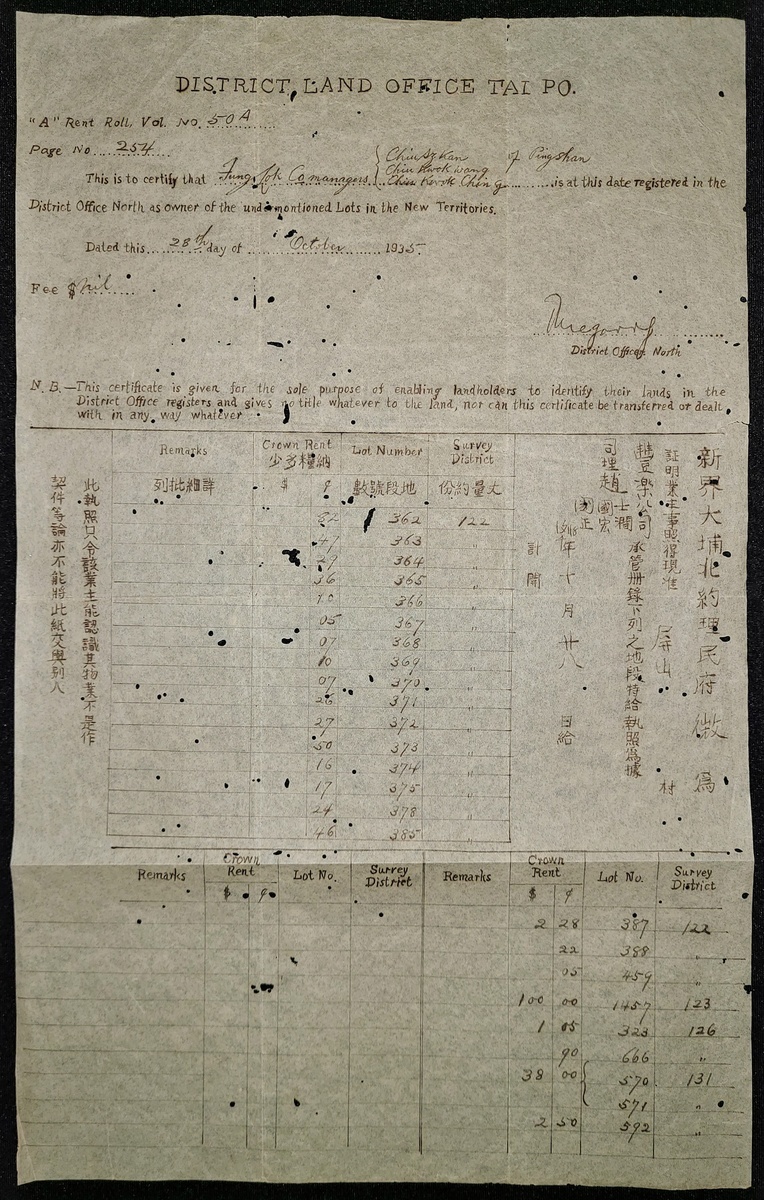 DISTRICT LAND OFFICE TAI PO.
"A" Rent Roll, Vol. No. 50A
Page No. 254
This is to certify that Fung Lok Co managers { Chiu Sz Kan of Pingshan
Chiu Kwok Wang
Chiu Kwok Ching is at this date registered in the
District Office North as owner of the undermontioned Lots in the New Territories.
Dated this 28th day of October 1935.
Fee $ nil
District Officer North
N.B.—This certificate is given for the sole purpose of enabling landholders to identify their lands in the
District Office registers and gives no title whatever to the land, nor can this certificate be transferred or dealt
with in any way whatever
新界大埔北約理民府徽 為
証明業主事照得現准 屏山 村
豐樂公司 承管冊錄下列之地段特給執照為據
司理趙 士澗
國宏
國正
年十月廿八日給
計開
Survey District Lot Number Crown Rent Remarks
丈量約份 地段號數 納糧多少 詳細批列
$ ¢
122 362 82
" 363 47
" 364 29
" 365 36
" 366 10
" 367 05
" 368 07
" 369 10
" 370 07
" 371 26
" 372 27
" 373 50
" 374 16
" 375 17
" 378 24
" 385 46
此執照只令該業主能認識其物業不是作
契件等論亦不能將此紙交與別人
Remarks Crown Rent Lot No. Survey District Remarks Crown Rent Lot No. Survey District
$ ¢ $ ¢
2 28 387 122
22 388 "
05 459 "
100 00 1457 123
1 05 323 126
90 666 "
38 00 { 570 131
571 "
2 50 592 "